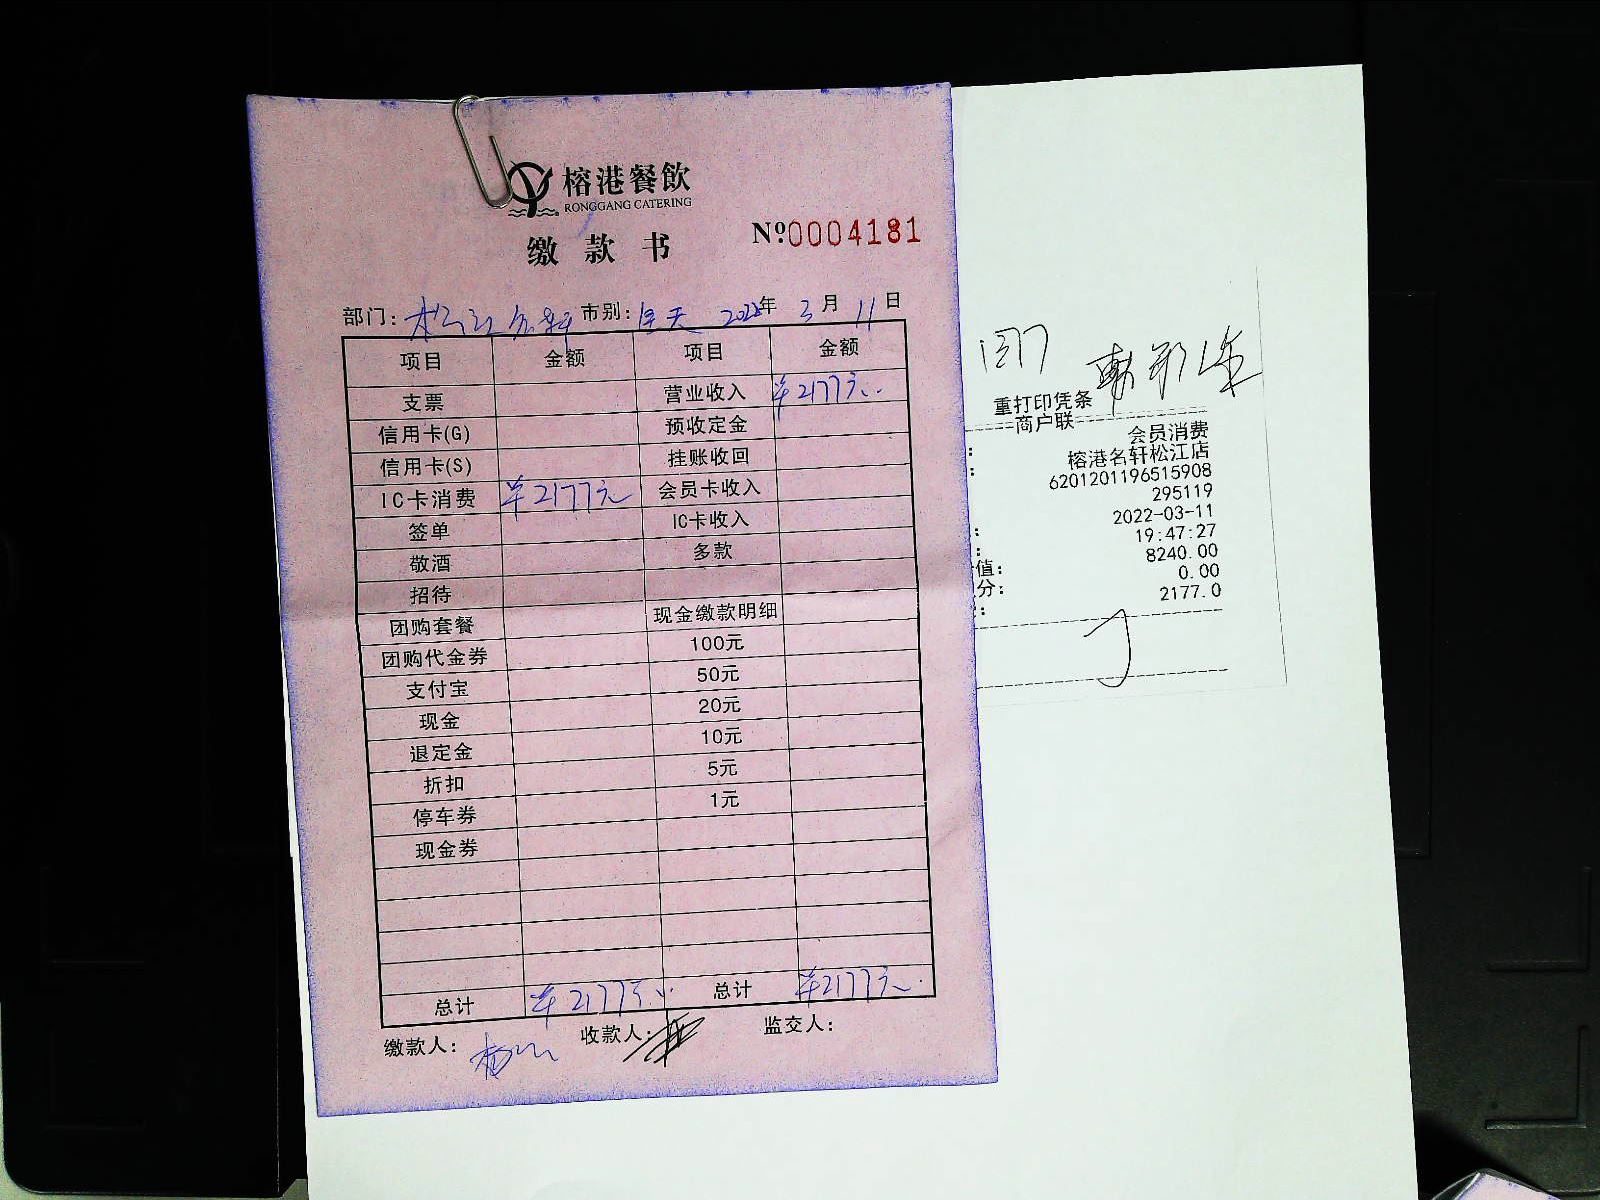 榕港餐飲
RONGGANG CATERING
缴款书
№0004181
部门: 松江名轩 市别: 全天 2022年 3月 11日
项目 金额 项目 金额
支票 营业收入 ¥2177元
信用卡(G) 预收定金
信用卡(S) 挂账收回
IC卡消费 ¥2177元 会员卡收入
签单 IC卡收入
敬酒 多款
招待
团购套餐 现金缴款明细
团购代金券 100元
支付宝 50元
现金 20元
退定金 10元
折扣 5元
停车券 1元
现金券
总计 ¥2177元 总计 ¥2177元
缴款人: 收款人: 监交人:
重打印凭条
商户联
: 会员消费
: 榕港名轩松江店
6201201196515908
295119
2022-03-11
: 19:47:27
: 8240.00
值: 0.00
分: 2177.0
: